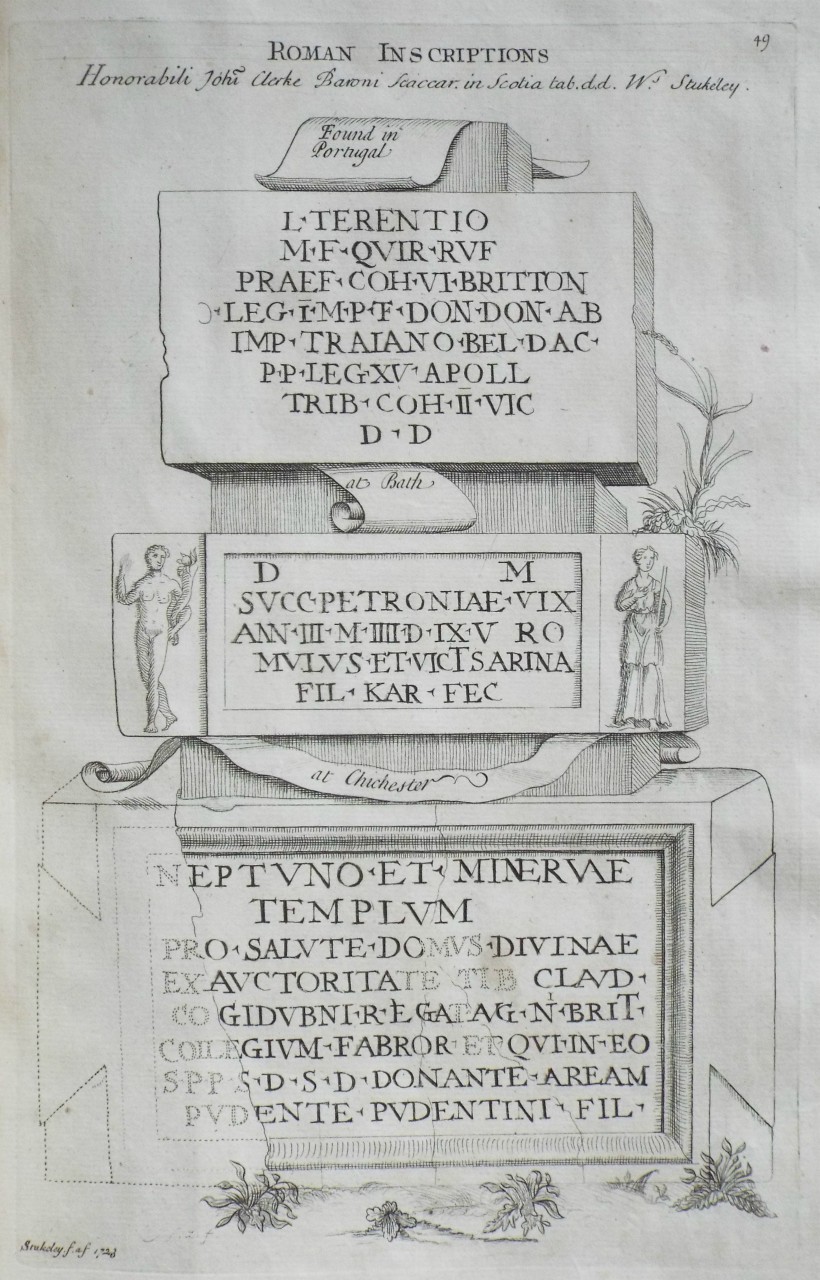 49
ROMAN INSCRIPTIONS
Honorabili Joħi Clerke Baroni Scaccar. in Scotia tab. d.d. W.^s Stukeley.
Found in
Portugal
L·TERENTIO
M·F·QVIR·RVF
PRAEF·COH·VI·BRITTON
Ɔ·LEG·Ī·M·P·F·DON·DON·AB
IMP·TRAIANO·BEL·DAC·
P·P·LEG·XV·APOLL
TRIB·COH·II̅·VIC
D·D
at Bath
D M
SVCC·PETRONIAE·VIX
ANN·III·M·IIII·D·IX·V RO
MVLVS·ET·VICTSARINA
FIL·KAR·FEC
at Chichester
NEPTVNO·ET·MINERVAE
TEMPLVM
PRO·SALVTE·DOMVS·DIVINAE
EX·AVCTORITATE TIB CLAVD·
COGIDVBNI·R·LEGAT·AVG·N·BRIT·
COLLEGIVM·FABROR ET QVI·IN·EO
S·P·P S·D·S·D·DONANTE·AREAM
PVDENTE·PVDENTINI·FIL·
Stukeley f. 1723